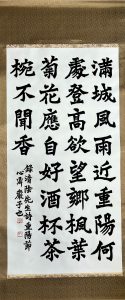 滿城風雨近重陽何
處登高欲望鄉楓葉
菊花應自好酒杯茶
椀不聞香
錄清陰先生詩重陽節
心齋 嚴子也